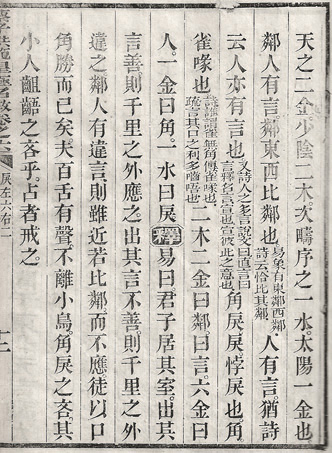 天之二金少陰一木次疇序之一水太陽一金也
鄰人有言鄰東西比鄰也易象有東鄰西鄰詩云洽比其鄰人有言猶詩
云人亦有言言又詩人之多言說文曰直言曰言釋名言宣也宣彼此之意也角戾戾悖戾也角
雀啄也詩誰謂雀無角傳雀啄也言其口之利多也二木二金曰鄰曰言六金曰
人一金曰角一水曰戾釋易曰君子居其室出其
言善則千里之外應之出其言不善則千里之外
違之鄰人有違言則雖近若比鄰而不應徒以口
角勝而已矣夫百舌有聲不離小鳥角戾之吝其
小人齟齬之吝乎占者戒之
戾左六右二